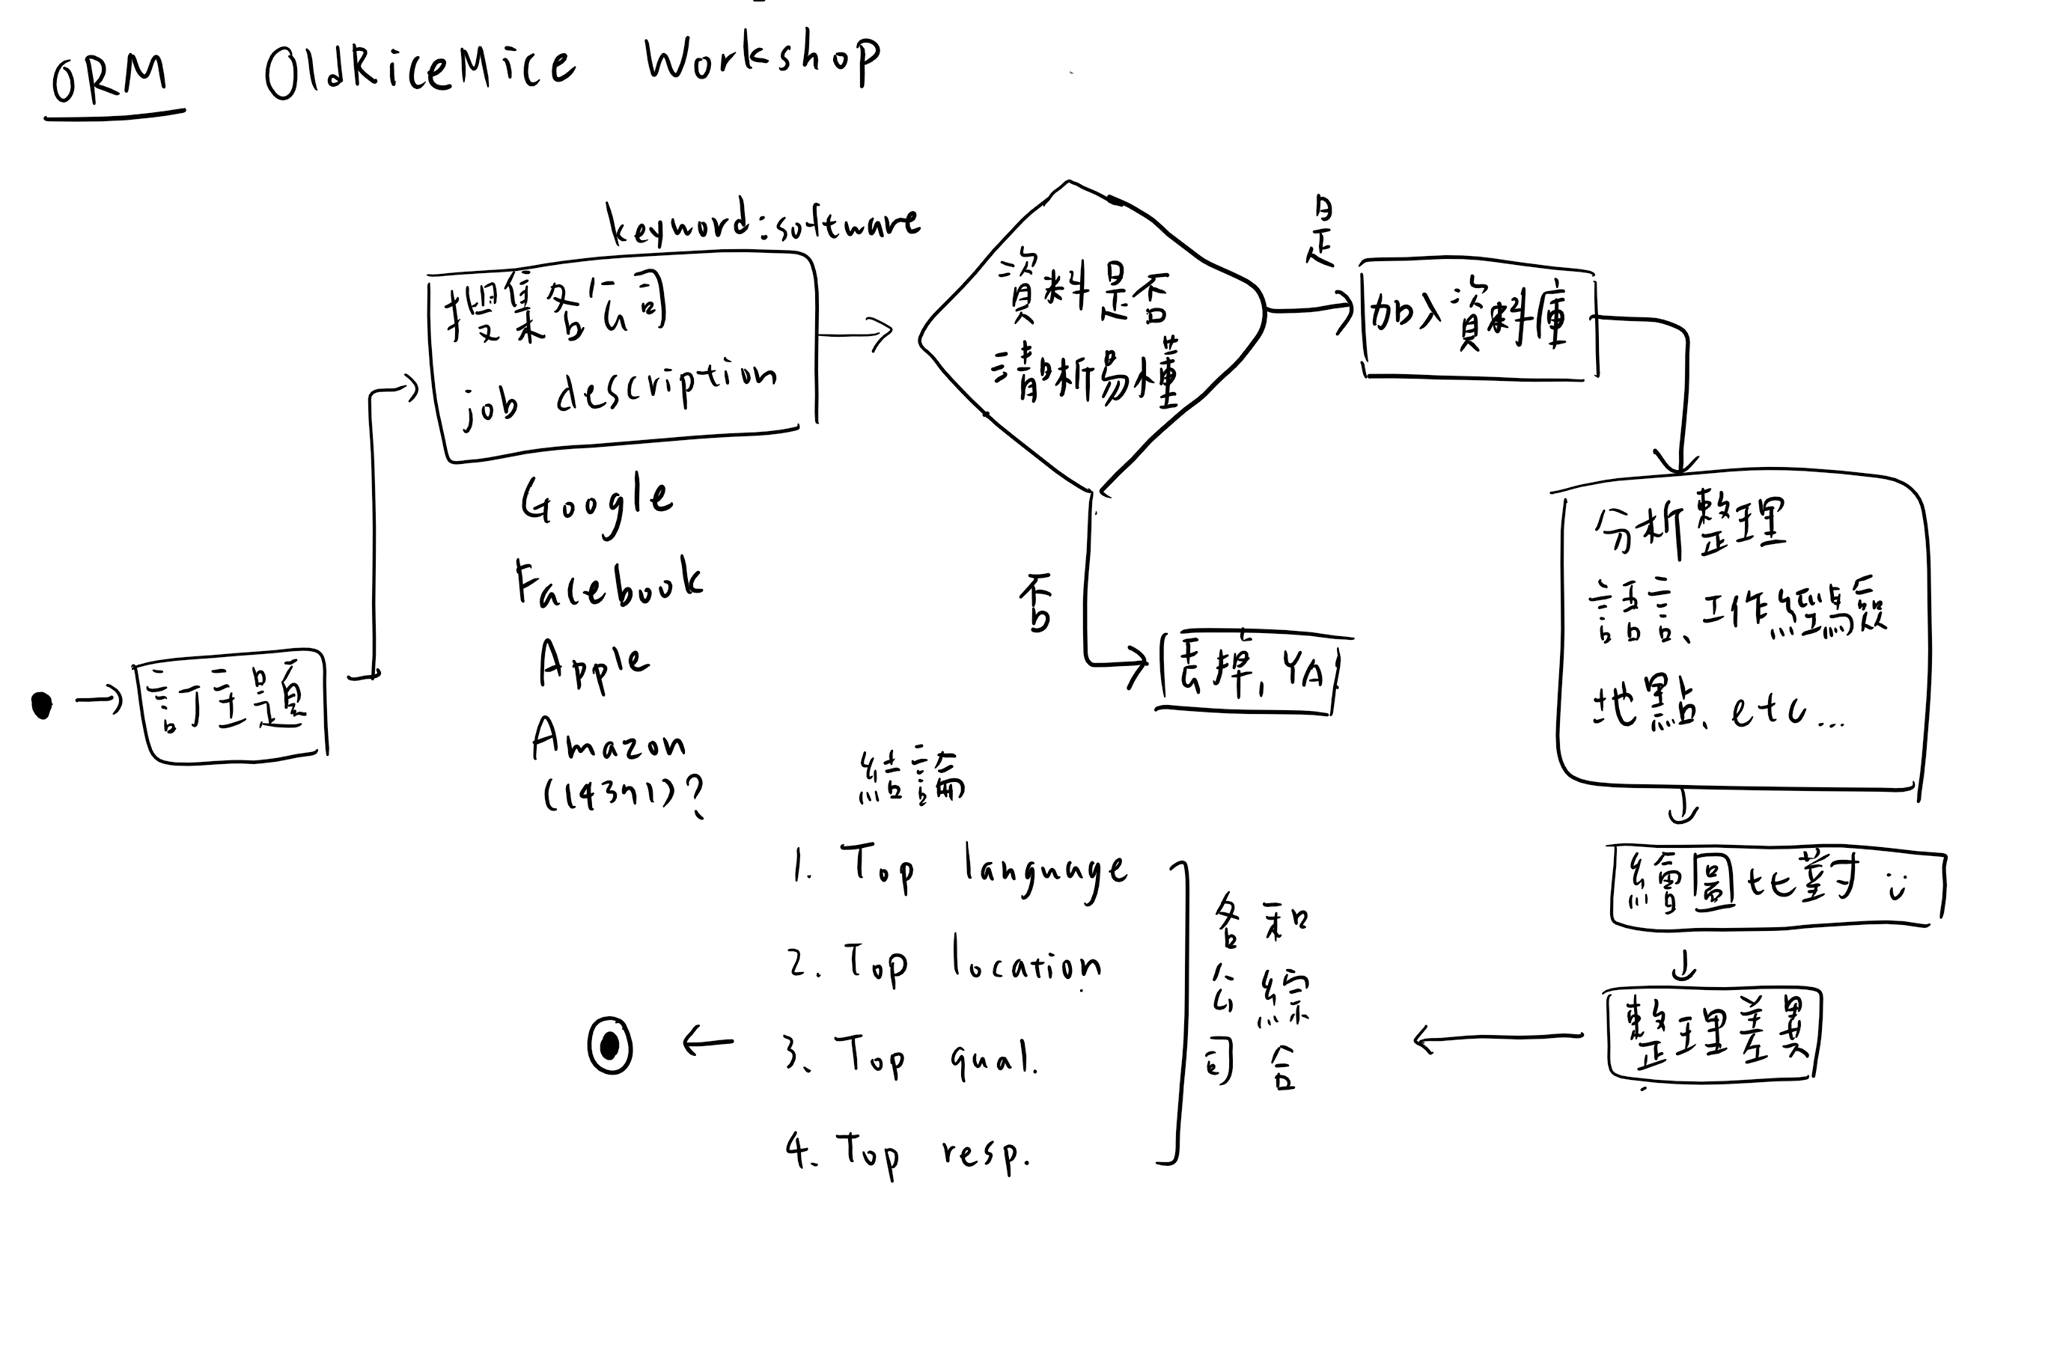 ORM OldRiceMice Workshop
keyword:software
搜集各公司
job description
Google
Facebook
Apple
Amazon
(14371)?
訂主題
資料是否
清晰易懂
是
加入資料庫
否
丟掉, YA
分析整理
語言、工作經驗
地點、etc...
繪圖比對 ü
整理差異
結論
1. Top language
2. Top location
3. Top qual.
4. Top resp.
各公司
和綜合